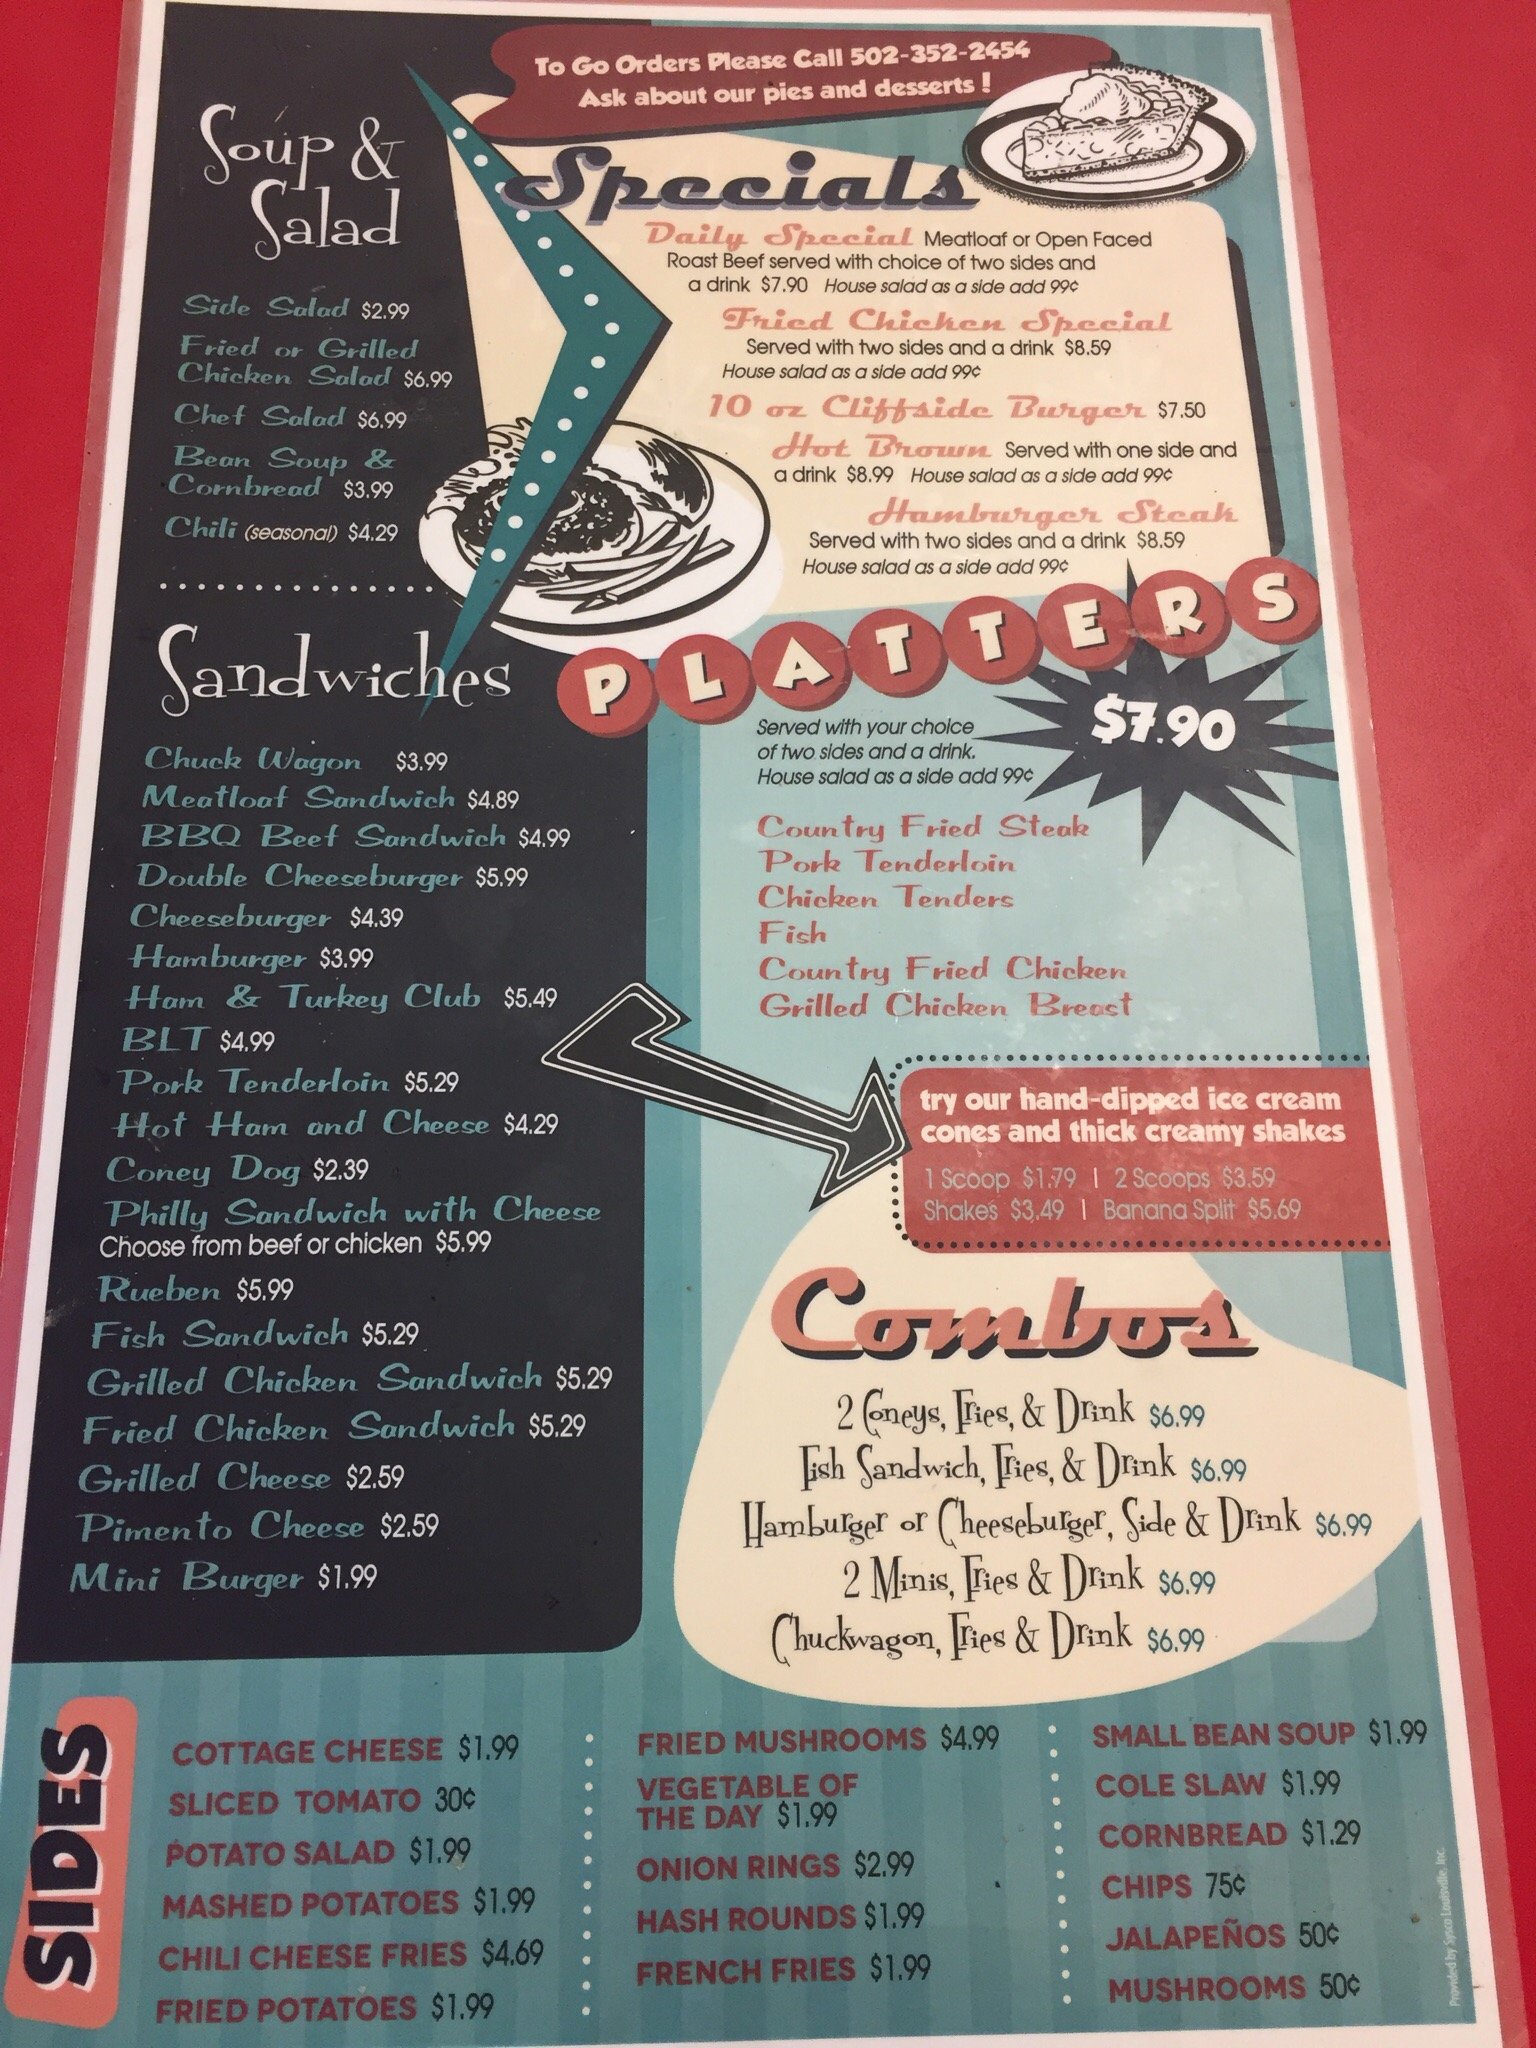 To Go Orders Please Call 502-352-2454
Ask about our pies and desserts!
Soup &
Salad
Side Salad $2.99
Fried or Grilled
Chicken Salad $6.99
Chef Salad $6.99
Bean Soup &
Cornbread $3.99
Chili (seasonal) $4.29
Sandwiches
Chuck Wagon $3.99
Meatloaf Sandwich $4.89
BBQ Beef Sandwich $4.99
Double Cheeseburger $5.99
Cheeseburger $4.39
Hamburger $3.99
Ham & Turkey Club $5.49
BLT $4.99
Pork Tenderloin $5.29
Hot Ham and Cheese $4.29
Coney Dog $2.39
Philly Sandwich with Cheese
Choose from beef or chicken $5.99
Rueben $5.99
Fish Sandwich $5.29
Grilled Chicken Sandwich $5.29
Fried Chicken Sandwich $5.29
Grilled Cheese $2.59
Pimento Cheese $2.59
Mini Burger $1.99
Specials
Daily Special Meatloaf or Open Faced
Roast Beef served with choice of two sides and
a drink $7.90 House salad as a side add 99¢
Fried Chicken Special
Served with two sides and a drink $8.59
House salad as a side add 99¢
10 oz Cliffside Burger $7.50
Hot Brown Served with one side and
a drink $8.99 House salad as a side add 99¢
Hamburger Steak
Served with two sides and a drink $8.59
House salad as a side add 99¢
PLATTERS
$7.90
Served with your choice
of two sides and a drink.
House salad as a side add 99¢
Country Fried Steak
Pork Tenderloin
Chicken Tenders
Fish
Country Fried Chicken
Grilled Chicken Breast
try our hand-dipped ice cream
cones and thick creamy shakes
1 Scoop $1.79 | 2 Scoops $3.59
Shakes $3.49 | Banana Split $5.69
Combos
2 Coneys, Fries, & Drink $6.99
Fish Sandwich, Fries, & Drink $6.99
Hamburger or Cheeseburger, Side & Drink $6.99
2 Minis, Fries & Drink $6.99
Chuckwagon, Fries & Drink $6.99
SIDES
COTTAGE CHEESE $1.99
SLICED TOMATO 30¢
POTATO SALAD $1.99
MASHED POTATOES $1.99
CHILI CHEESE FRIES $4.69
FRIED POTATOES $1.99
FRIED MUSHROOMS $4.99
VEGETABLE OF
THE DAY $1.99
ONION RINGS $2.99
HASH ROUNDS $1.99
FRENCH FRIES $1.99
SMALL BEAN SOUP $1.99
COLE SLAW $1.99
CORNBREAD $1.29
CHIPS 75¢
JALAPEÑOS 50¢
MUSHROOMS 50¢
Provided by Sysco Louisville, Inc.